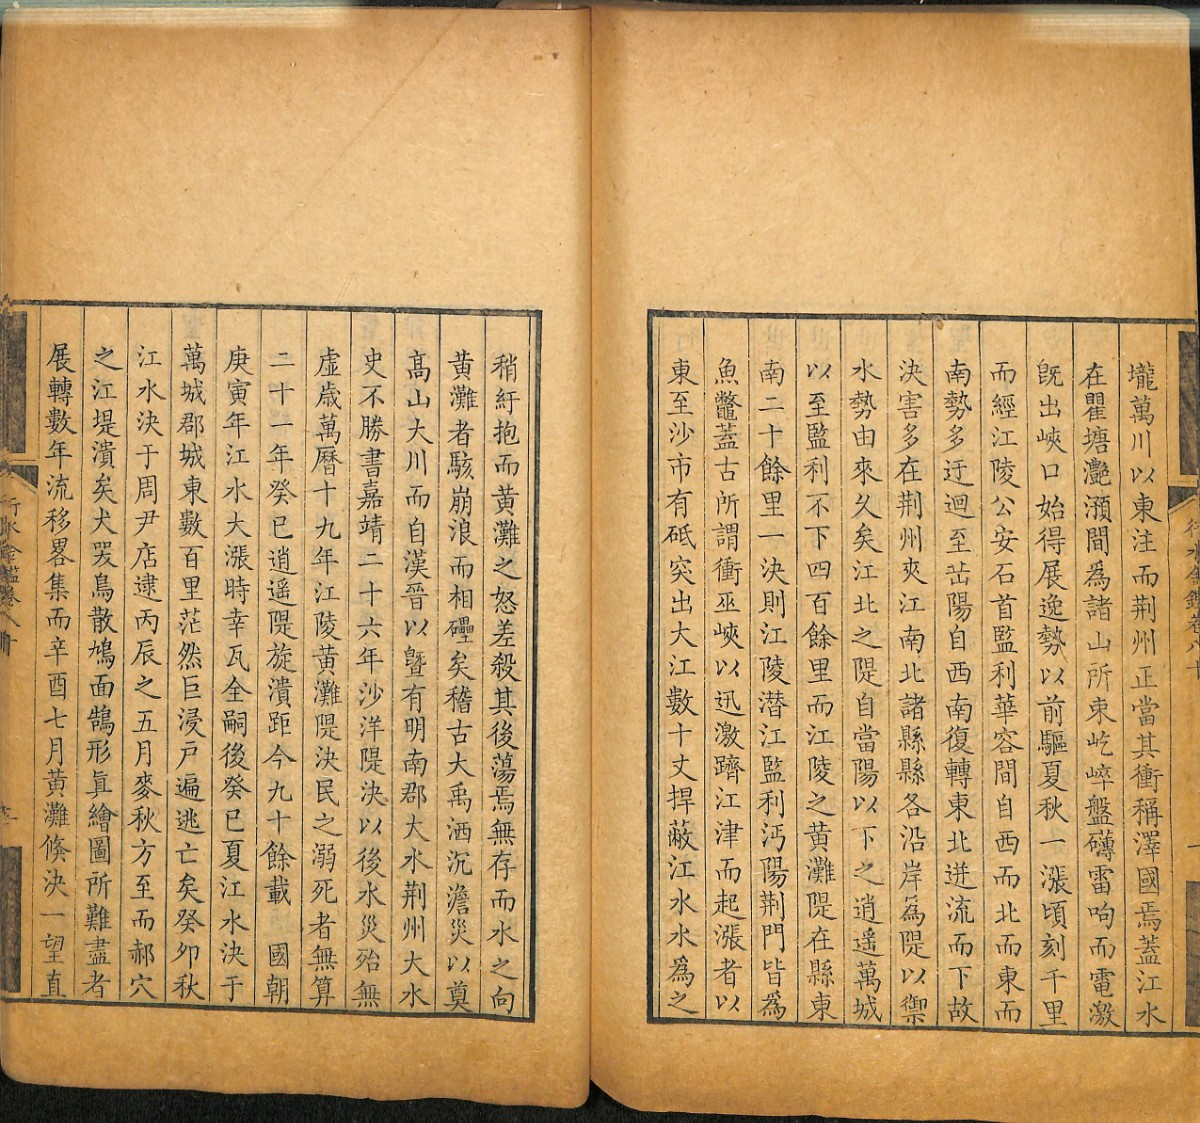 壠萬川以東注而荆州正當其衝稱澤國焉蓋江水
在瞿塘灧澦間為諸山所束屹崪盤礴雷呴而電激
旣出峽口始得展逸勢以前驅夏秋一漲頃刻千里
而經江陵公安石首監利華容間自西而北而東而
南勢多迂迴至岳陽自西南復轉東北迸流而下故
決害多在荆州夾江南北諸縣縣各沿岸為隄以禦
水勢由來久矣江北之隄自當陽以下之逍遥萬城
以至監利不下四百餘里而江陵之黃灘隄在縣東
南二十餘里一決則江陵潜江監利沔陽荆門皆為
魚鼈蓋古所謂衝巫峽以迅激躋江津而起漲者以
東至沙市有砥突出大江數十丈捍蔽江水水為之
稍紆抱而黃灘之怒差殺其後蕩焉無存而水之向
黃灘者駭崩浪而相礧矣稽古大禹洒沉澹災以奠
髙山大川而自漢晉以曁有明南郡大水荆州大水
史不勝書嘉靖二十六年沙洋隄決以後水災殆無
虛歲萬曆十九年江陵黃灘隄決民之溺死者無算
二十一年癸巳逍遥隄旋潰距今九十餘載 國朝
庚寅年江水大漲時幸瓦全嗣後癸巳夏江水決于
萬城郡城東數百里茫然巨浸戸遍逃亡矣癸卯秋
江水決于周尹店逮丙辰之五月麥秋方至而郝穴
之江堤潰矣犬哭鳥散鳩面鵠形眞繪圖所難盡者
展轉數年流移畧集而辛酉七月黃灘倏決一望直
行水金鑑卷八十